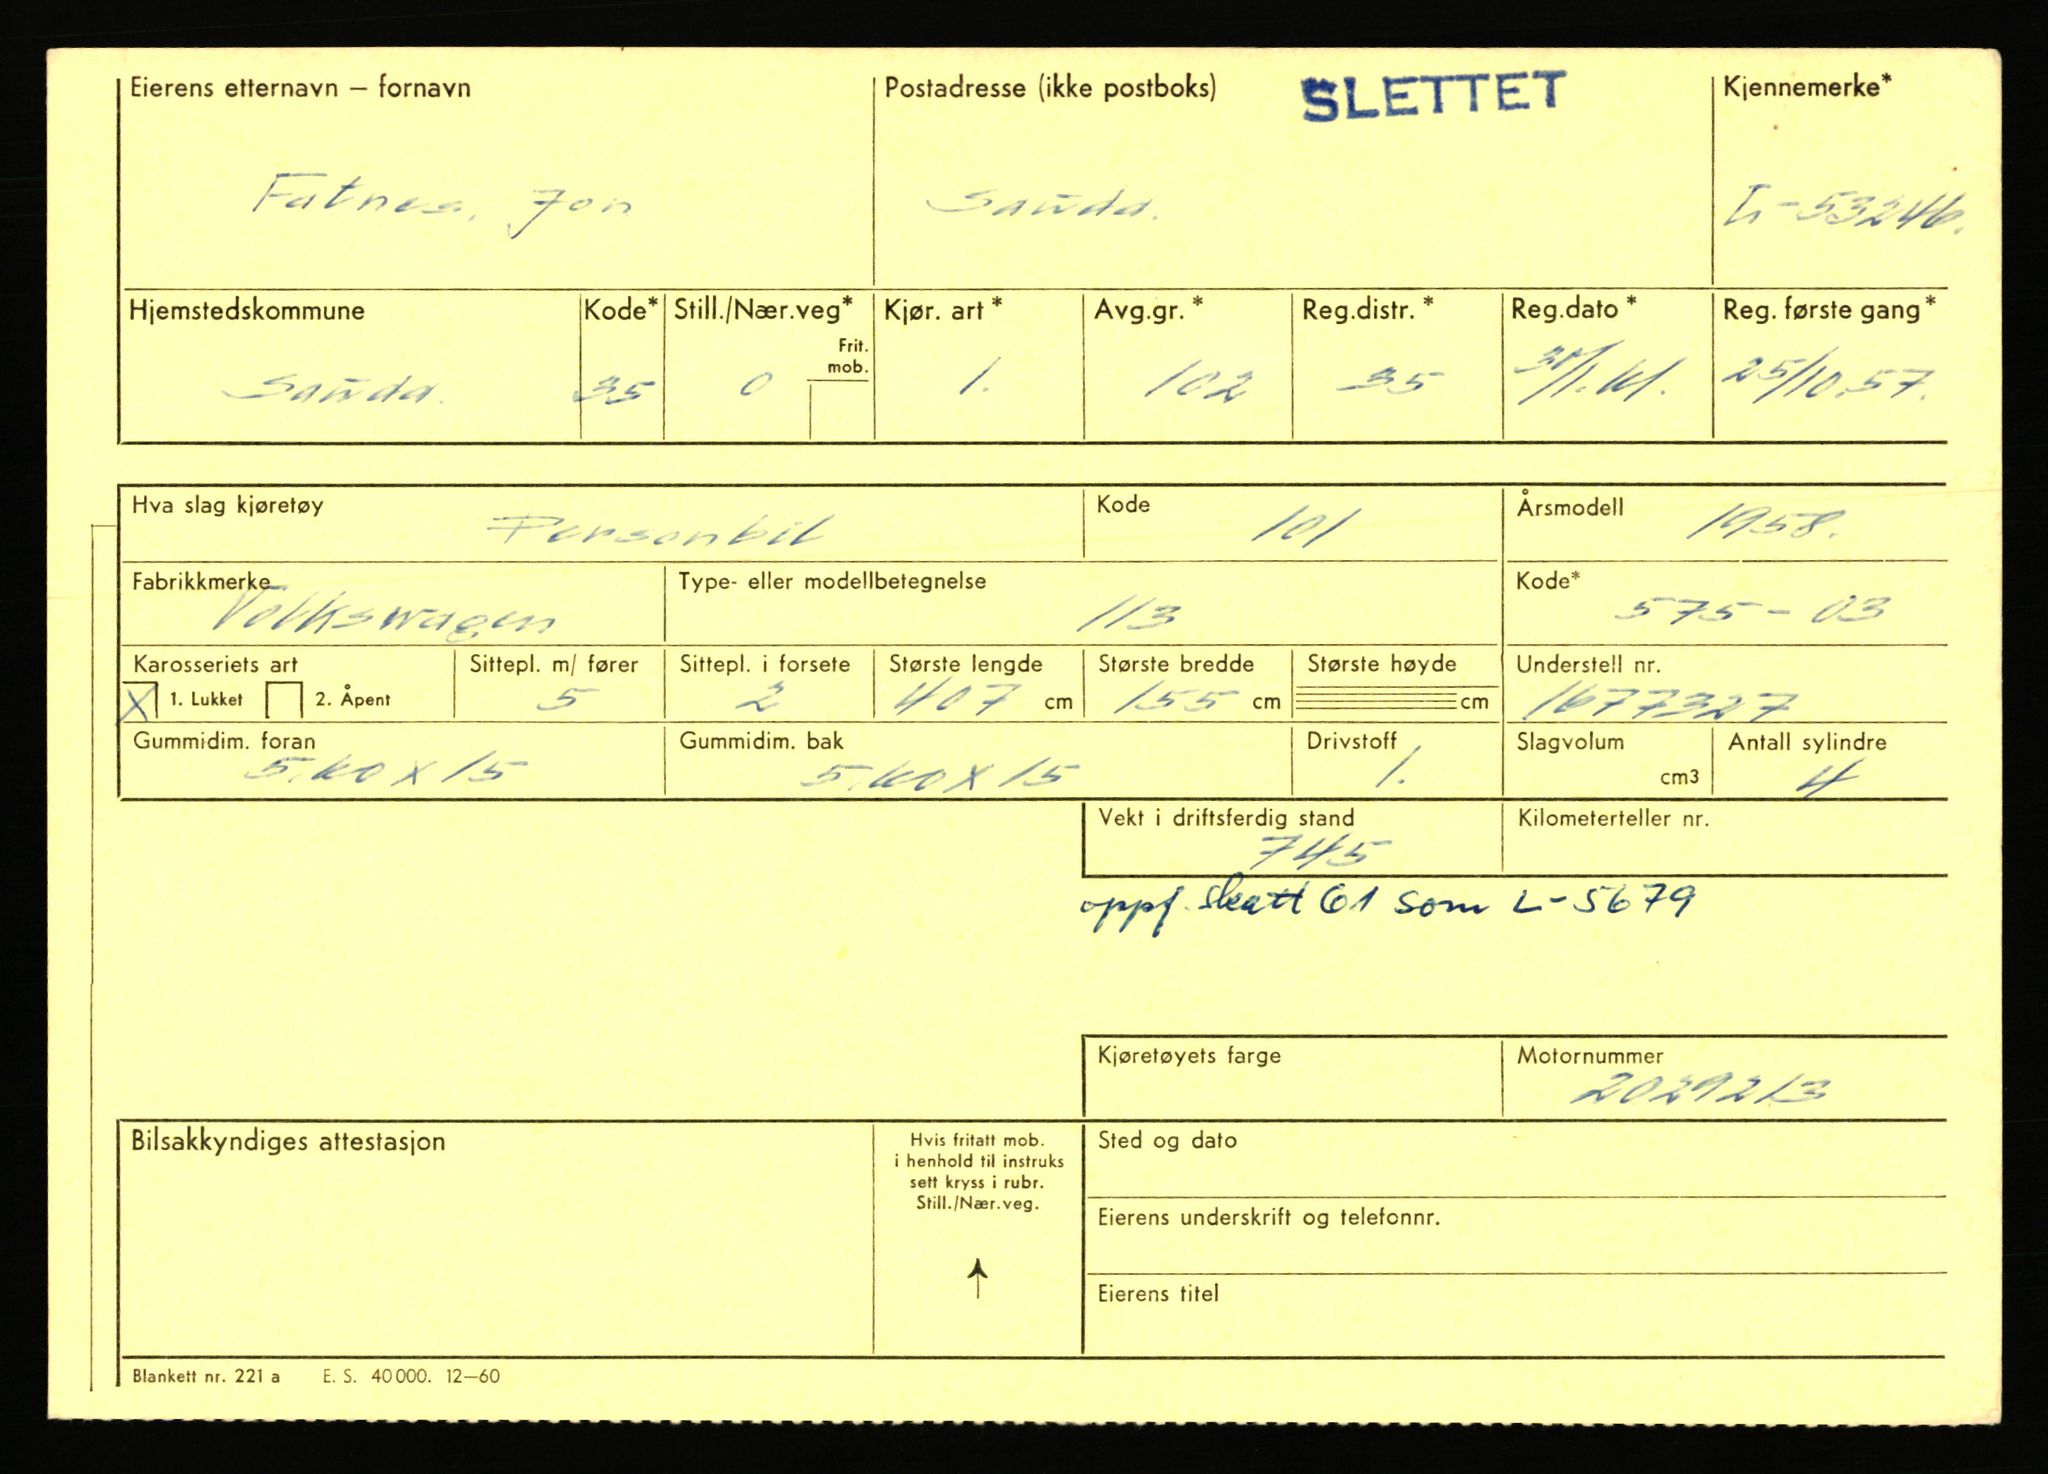 Eierens etternavn – fornavn
Postadresse (ikke postboks)
SLETTET
Kjennemerke*
Fatnes, Jon
Sauda.
L-53246.
Hjemstedskommune
Kode*
Still./Nær.veg*
Frit.
mob.
Kjør. art*
Avg.gr.*
Reg.distr.*
Reg.dato*
Reg. første gang*
Sauda.
35
0
1.
102
35
25/10.57.
Hva slag kjøretøy
Personbil
Kode
101
Årsmodell
1958.
Fabrikkmerke
Volkswagen
Type- eller modellbetegnelse
113
Kode*
575-03
Karosseriets art
X 1. Lukket 2. Åpent
Sittepl. m/ fører
5
Sittepl. i forsete
2
Største lengde
407 cm
Største bredde
155 cm
Største høyde
cm
Understell nr.
1677327
Gummidim. foran
5.60x15
Gummidim. bak
5.60x15
Drivstoff
1.
Slagvolum
cm3
Antall sylindre
4
Vekt i driftsferdig stand
745
Kilometerteller nr.
oppf. skatt 61 som L-5679
Kjøretøyets farge
Motornummer
2029213
Bilsakkyndiges attestasjon
Hvis fritatt mob.
i henhold til instruks
sett kryss i rubr.
Still./Nær.veg.
Sted og dato
Eierens underskrift og telefonnr.
Eierens titel
Blankett nr. 221 a E. S. 40 000. 12—60